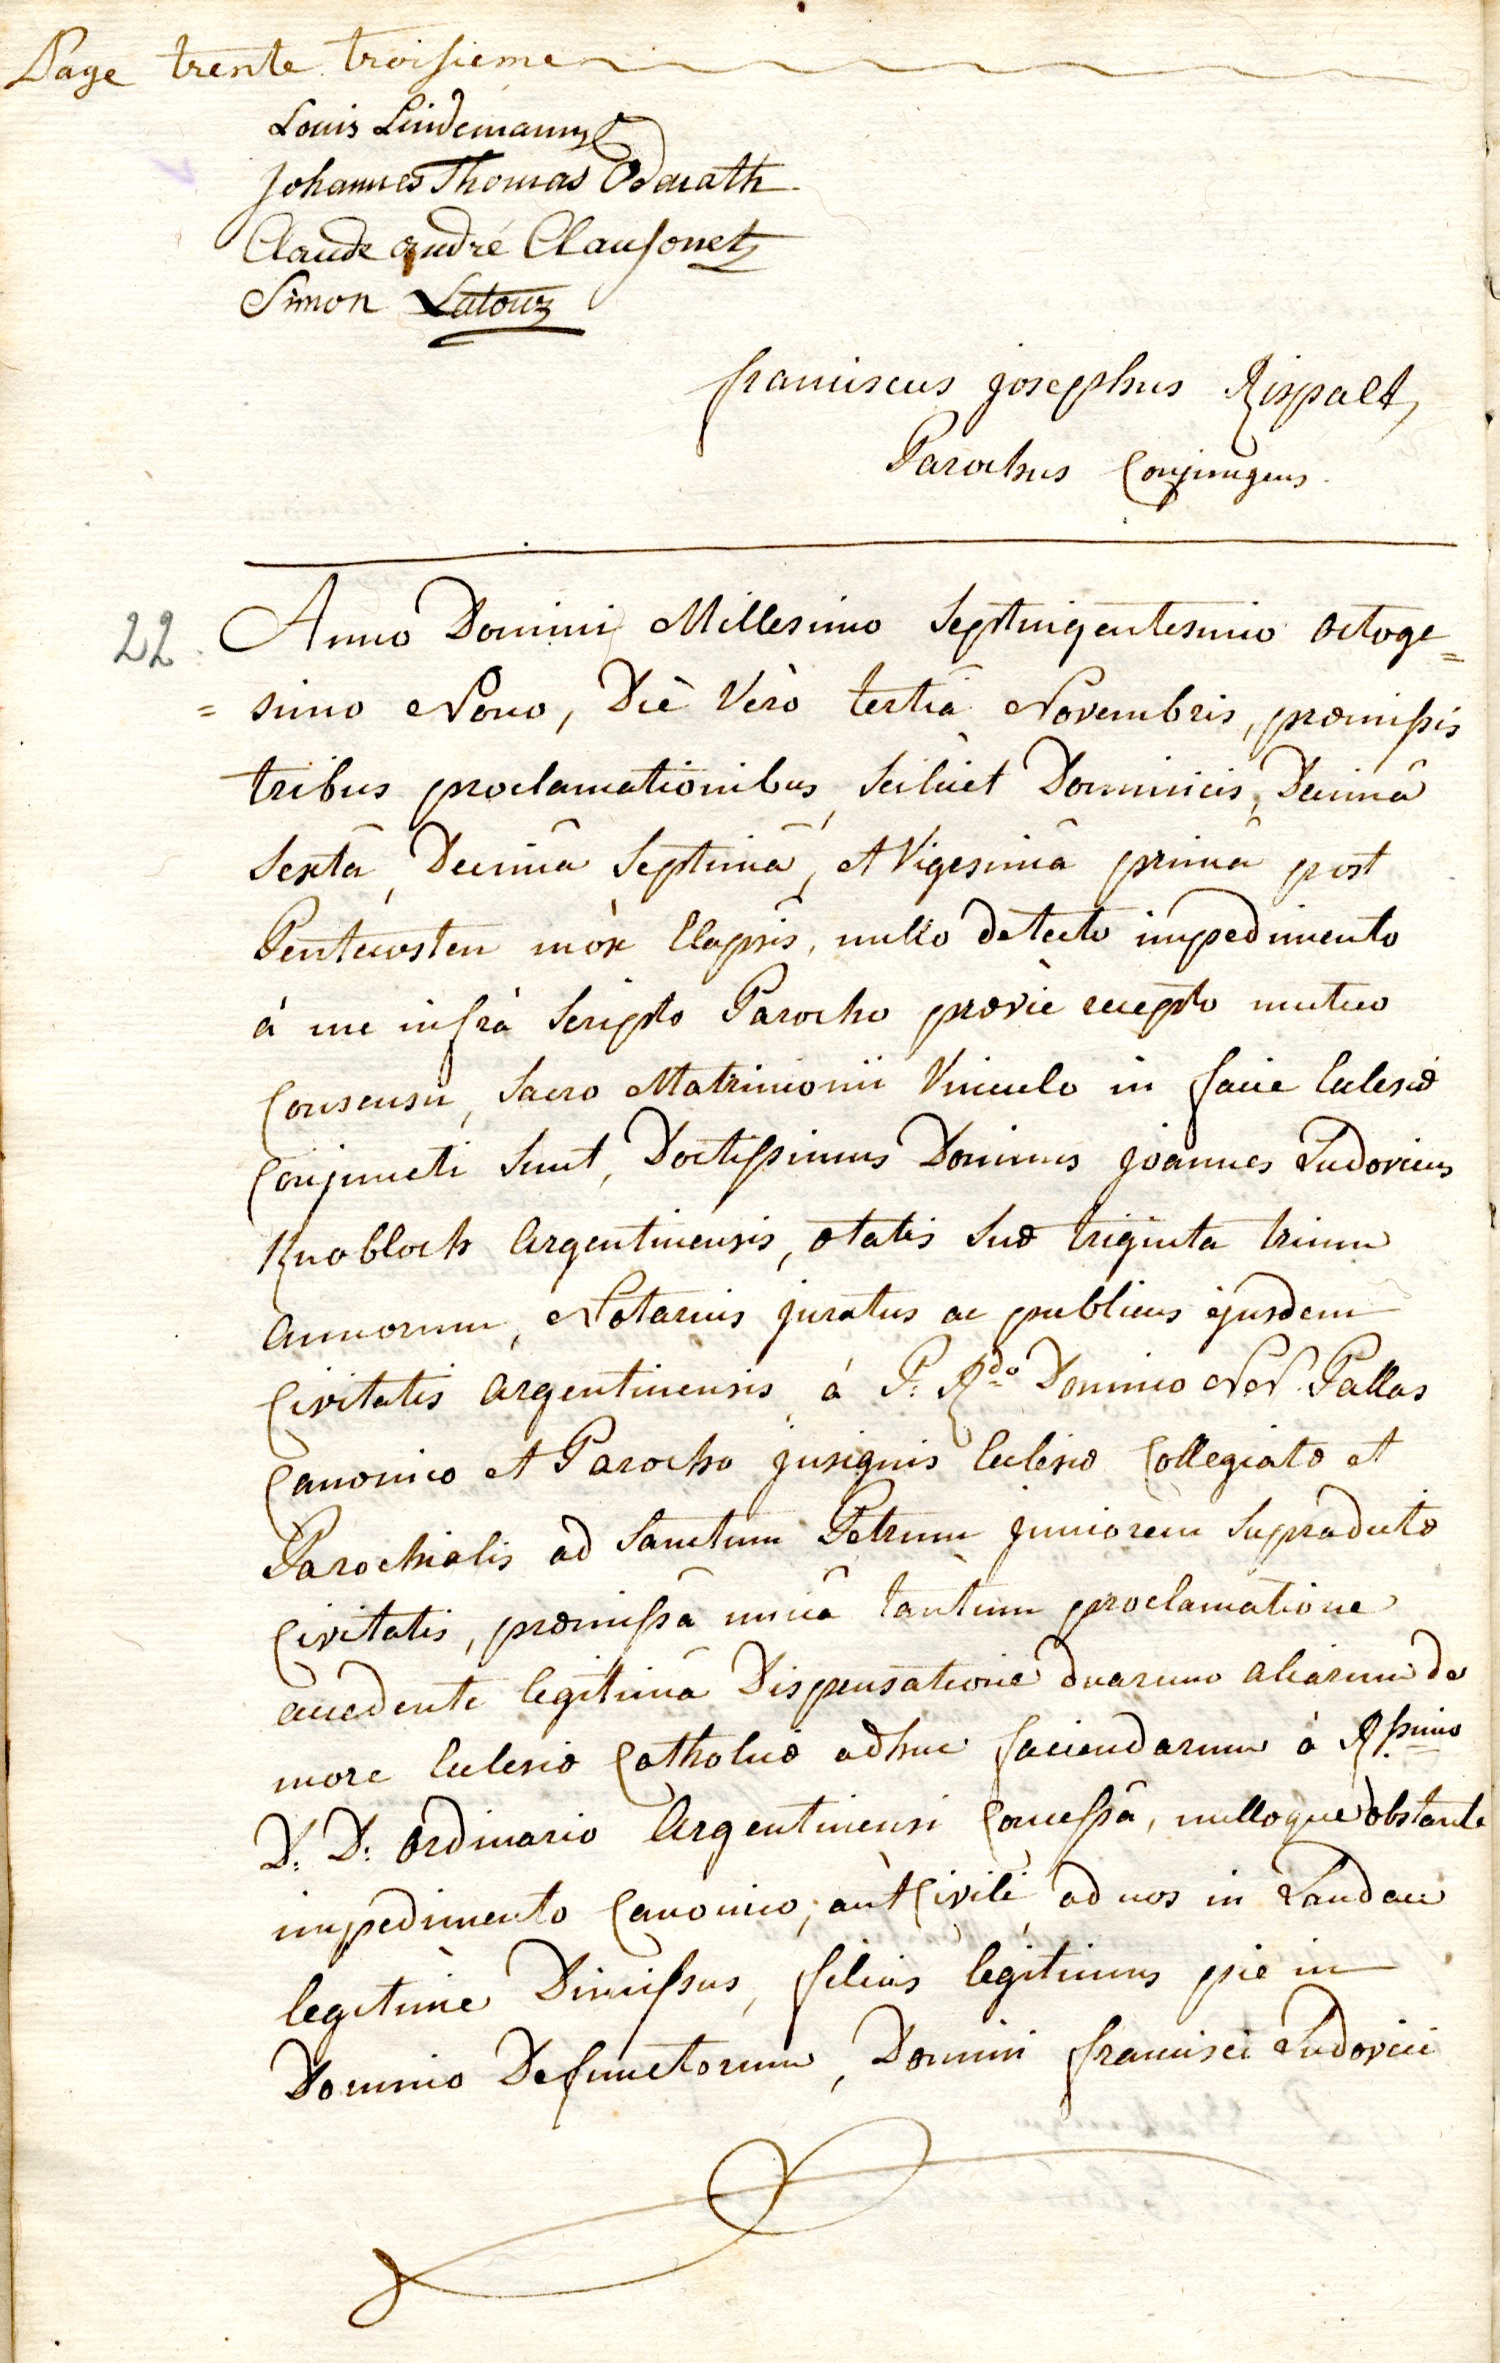 Page trente troisieme
Louis Lindemann
Johannes Thomas Odarath
Claude andré Clausonet
Simon Latour
franciscus josephus Rispalt,
Parochus Conjungens.
22. Anno Domini Millesimo Septingentesimo octoge=
= simo Nono, Diè Verò tertiâ Novembris, præmissis
tribus proclamationibus, Scilicèt Dominicis, Decimâ
Sextâ, Decimâ Septimâ, et Vigesimâ primâ post
Pentecosten mòx Elapsis, nullo detecto impedimento
à me infrà Scripto Parocho præviè recepto mutuo
Consensu, Sacro Matrimonii Vinculo in facie Ecclesiæ
Conjuncti Sunt, Doctissimus Dominus joannes Ludovicus
Knobloch Argentinensis, ætatis Suæ triginta trium
Annorum, Notarius juratus ac publicus ejusdem
Civitatis Argentinensis, à P: Rdo Domino NN. Pallas
Canonico et Parocho jnsignis Ecclesiæ Collegiatæ et
Parochialis ad Sanctum Petrum juniorem Supradictæ
Civitatis, præmissâ unicâ tantùm proclamatione
accedente legitimâ Dispensatione duarum aliarum de
more Ecclesiæ Catholicæ adhuc faciendarum à Rssimo
D: D: Ordinario Argentinensi Concessâ, nulloque obstante
impedimento Canonico, aùt Civili, ad nos in Landau
legitimè Dimissus, filius legitimus piè in
Domino Defunctorum, Domini francisci Ludovici